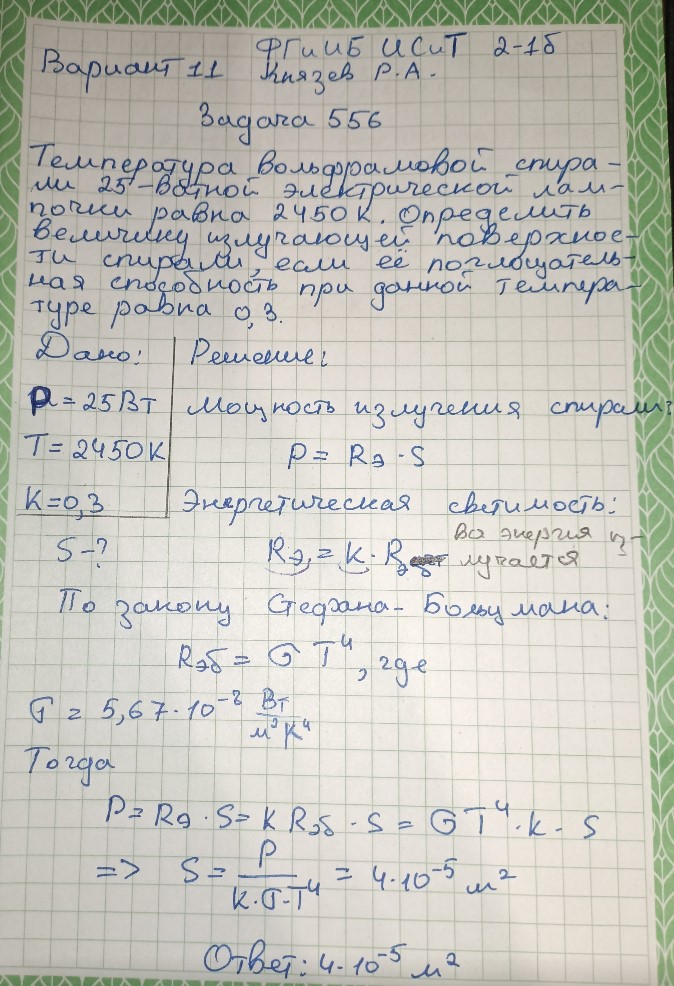 ФГиИБ ИСиТ 2-1б
Вариант 11 Князев Р.А.
Задача 556
Температура вольфрамовой спира-
ли 25-ваттной электрической лам-
почки равна 2450К. Определить
величину излучающей поверхнос-
ти спирали, если её поглощатель-
ная способность при данной темпера-
туре равна 0,3.
Дано: Решение:
P = 25Вт Мощность излучения спирали:
T = 2450К P = Rэ · S
K = 0,3 Энергетическая светимость:
S - ? Rэ = K · Rэб вся энергия из-
лучается
По закону Стефана-Больцмана:
Rэб = σ T⁴, где
σ = 5,67 · 10⁻⁸ Вт/м²К⁴
Тогда
P = Rэ · S = K Rэб · S = σ T⁴ · K · S
=> S = P/(K·σ·T⁴) = 4·10⁻⁵ м²
Ответ: 4·10⁻⁵ м²